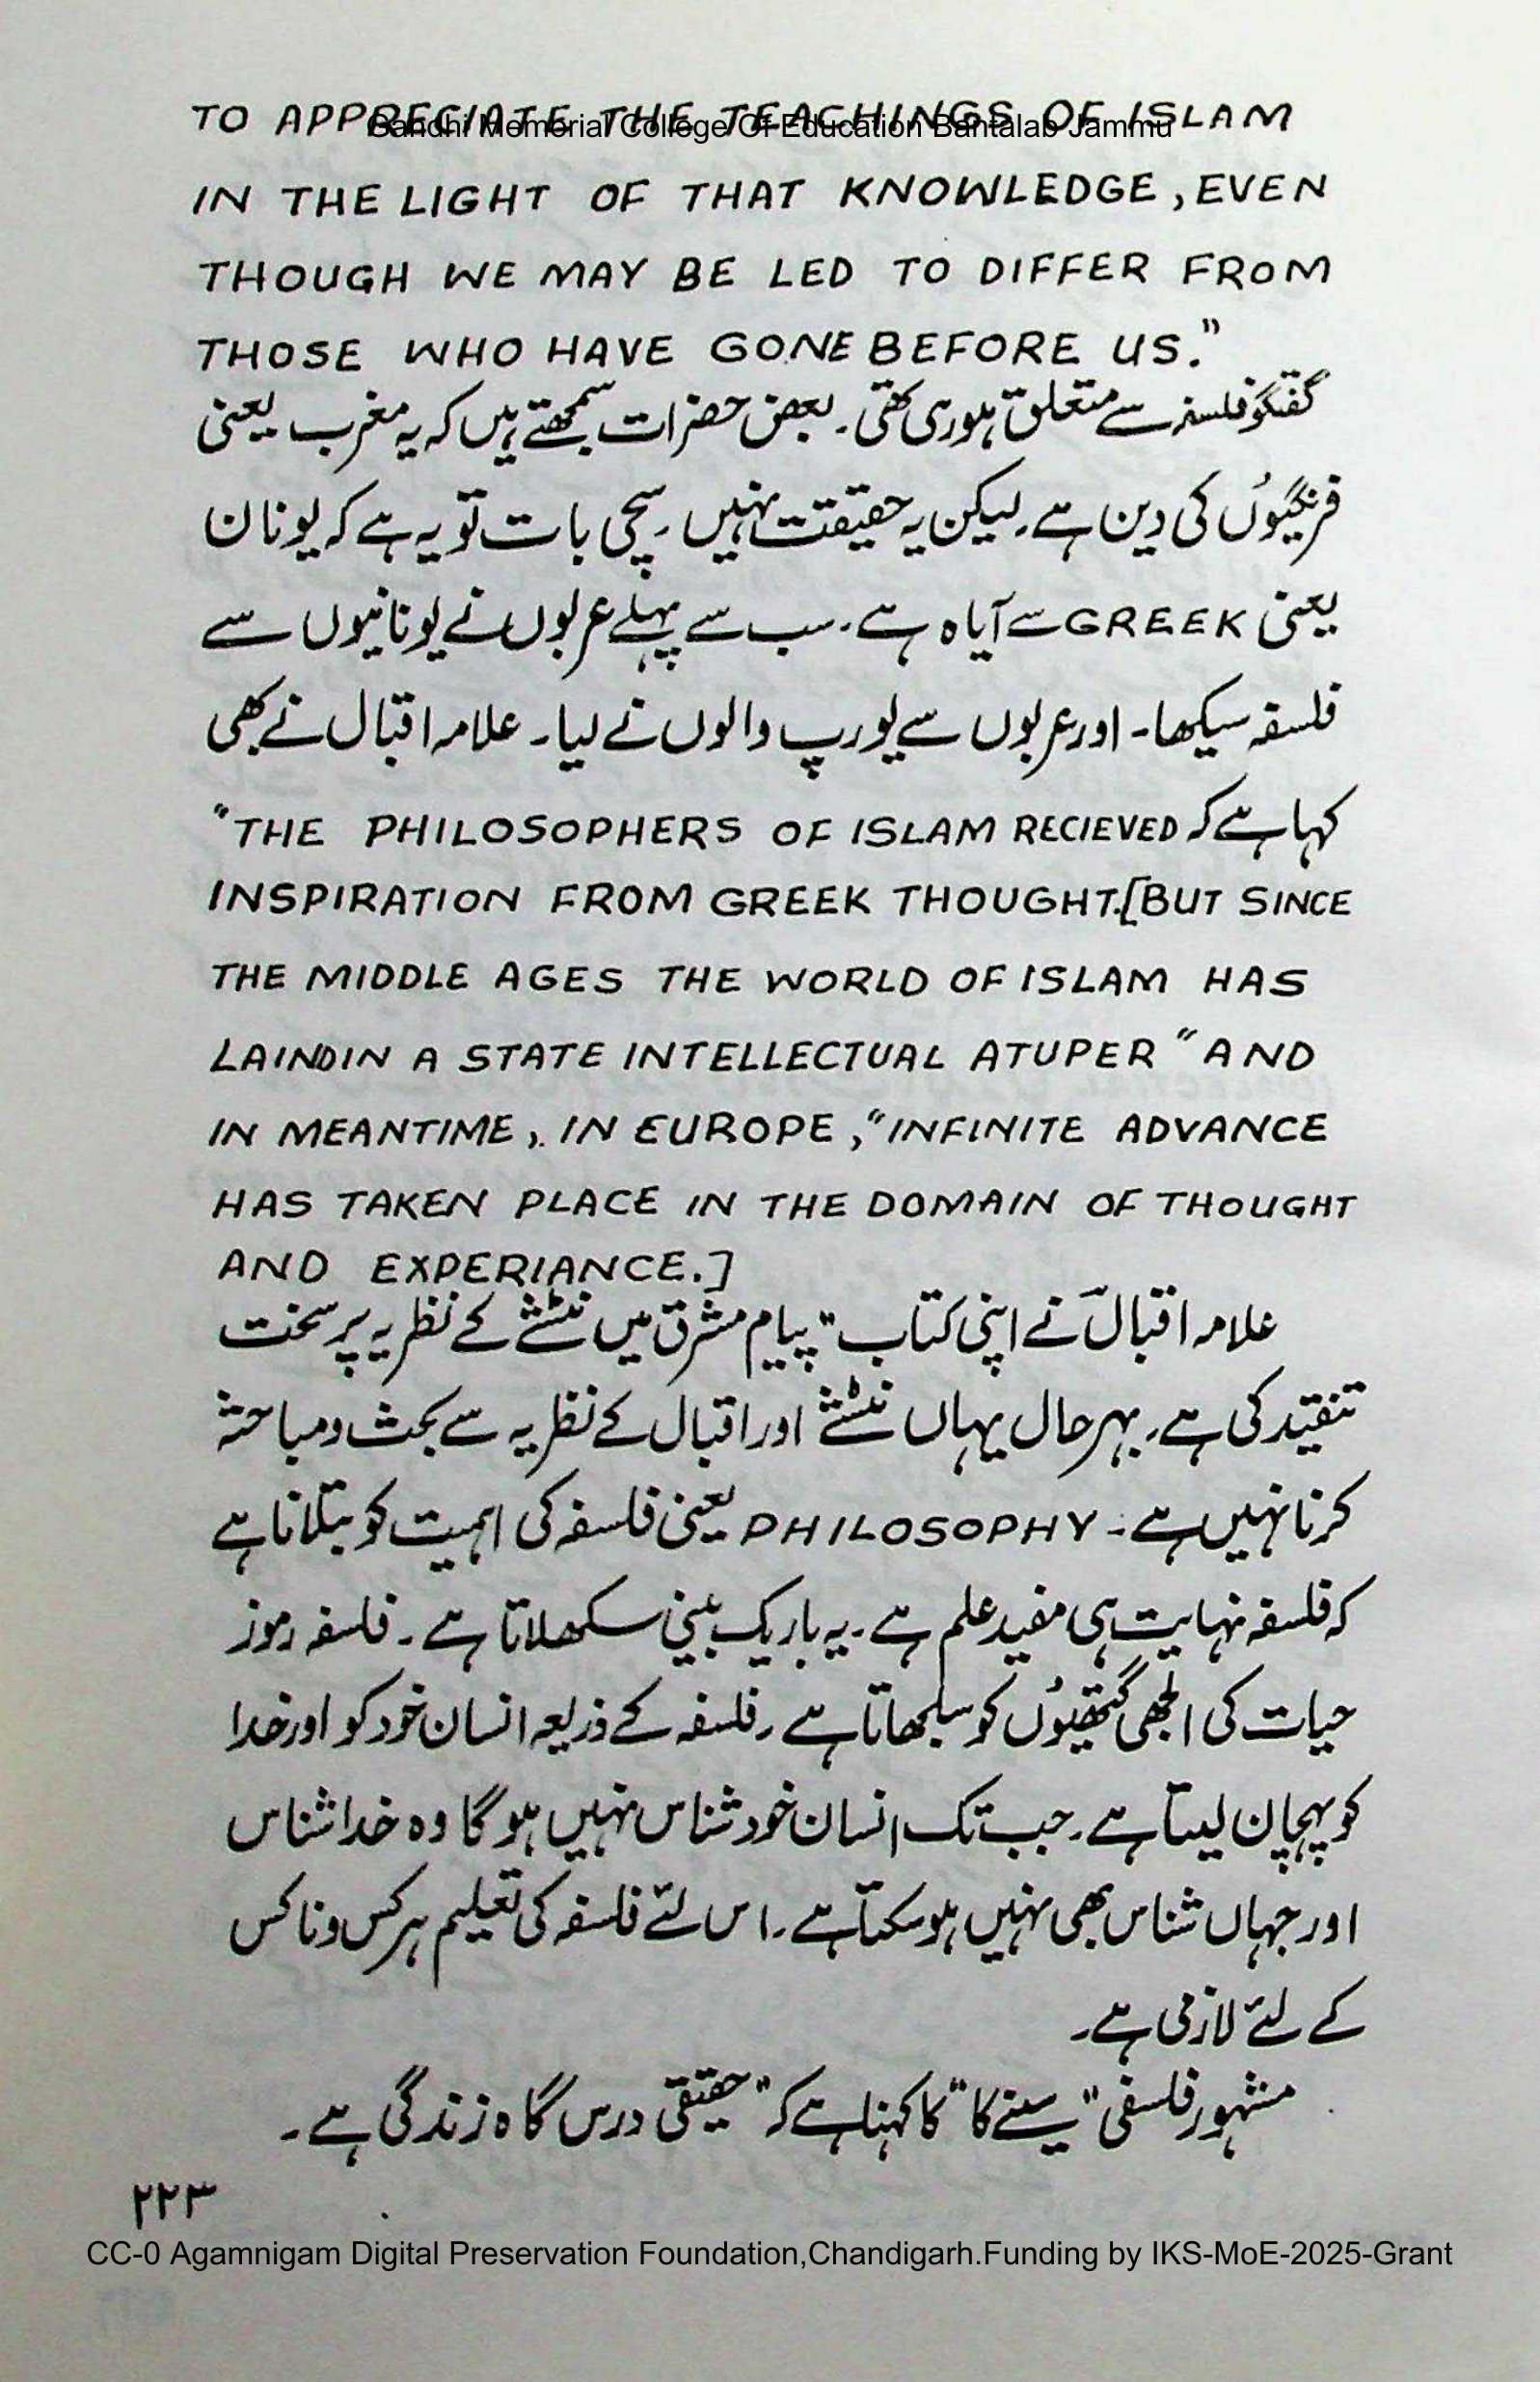 TO APPRECIATE THE TEACHINGS OF ISLAM
Gandhi Memorial College Of Education Bantalab Jammu
IN THE LIGHT OF THAT KNOWLEDGE, EVEN
THOUGH WE MAY BE LED TO DIFFER FROM
THOSE WHO HAVE GONE BEFORE US."
گفتگو فلسفہ سے متعلق ہورہی تھی۔ بعض حضرات سمجھتے ہیں کہ یہ مغرب یعنی
فرنگیوں کی دین ہے۔ لیکن یہ حقیقت نہیں۔ سچی بات تو یہ ہے کہ یونان
یعنی GREEK سے آیا ہ ہے۔ سب سے پہلے عربوں نے یونانیوں سے
فلسفہ سیکھا۔ اور عربوں سے یورپ والوں نے لیا۔ علامہ اقبال نے بھی
کہا ہے کہ "THE PHILOSOPHERS OF ISLAM RECIEVED
INSPIRATION FROM GREEK THOUGHT.[BUT SINCE
THE MIDDLE AGES THE WORLD OF ISLAM HAS
LAINDIN A STATE INTELLECTUAL ATUPER" AND
IN MEANTIME, IN EUROPE, "INFINITE ADVANCE
HAS TAKEN PLACE IN THE DOMAIN OF THOUGHT
AND EXPERIANCE.]
علامہ اقبالؔ نے اپنی کتاب "پیام مشرق میں نٹشے کے نظریہ پر سخت
تنقید کی ہے۔ بہرحال یہاں نٹشے اور اقبال کے نظریہ سے بحث و مباحثہ
کرنا نہیں ہے۔ PHILOSOPHY یعنی فلسفہ کی اہمیت کو بتلانا ہے
کہ فلسفہ نہایت ہی مفید علم ہے۔ یہ باریک بینی سکھلاتا ہے۔ فلسفہ رموز
حیات کی الجھی گتھیوں کو سلجھاتا ہے۔ فلسفہ کے ذریعہ انسان خود کو اور خدا
کو پہچان لیتا ہے۔ جب تک انسان خود شناس نہیں ہوگا وہ خدا شناس
اور جہاں شناس بھی نہیں ہوسکتا ہے۔ اس لئے فلسفہ کی تعلیم ہر کس و ناکس
کے لئے لازمی ہے۔
مشہور فلسفی "سینے کا" کا کہنا ہے کہ "حقیقی درس گاہ زندگی ہے۔
۲۲۳
CC-0 Agamnigam Digital Preservation Foundation,Chandigarh.Funding by IKS-MoE-2025-Grant